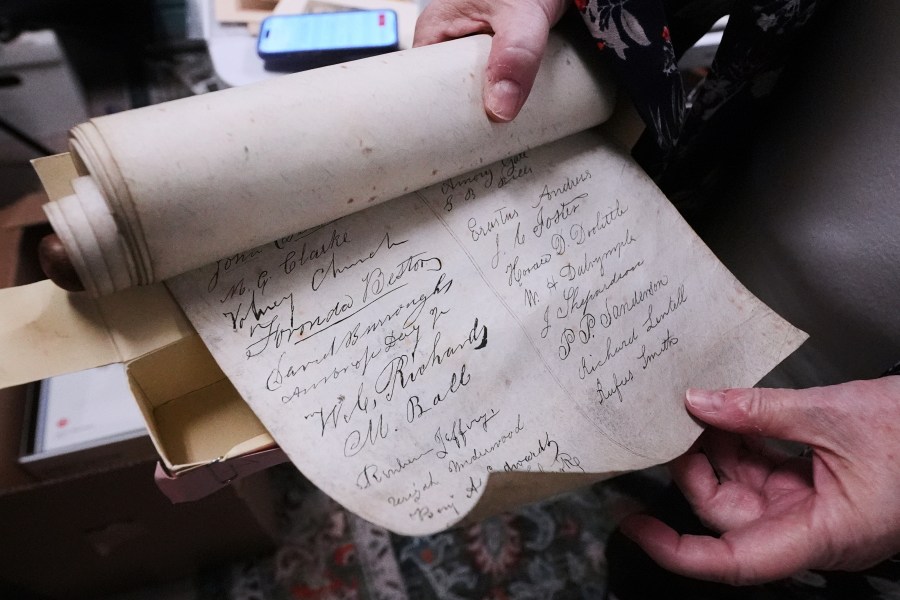 M. G. Clarke
Volney Church
Toronda Bettony
David Burroughs
Ambrose Day Jr
W. C. Richards
M. Ball
Reuben Jeffrys
Underwood
Benj A Edwards
Amory Gale
Erastus Andrews
J. C Foster
Horace D. Doolittle
W. H Dalrymple
J Shepardson
P. P. Sanderson
Richard Lentell
Rufus Smith